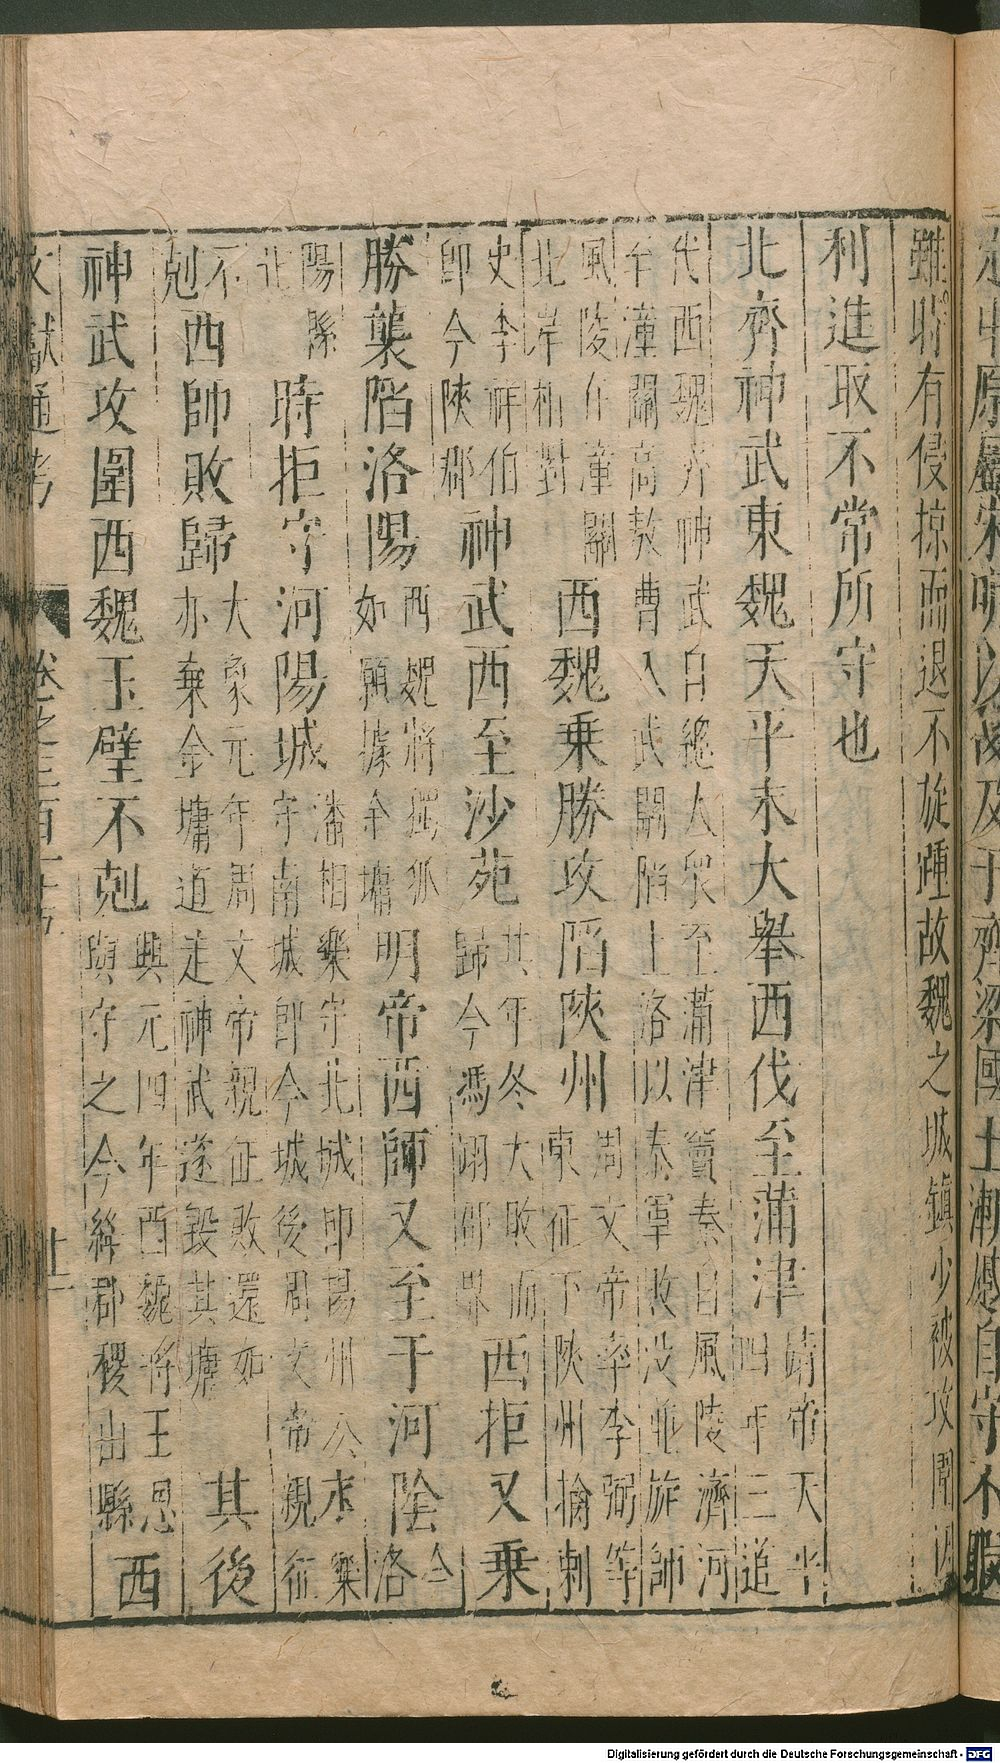 雖時有侵掠而退不旋踵故魏之城鎮少被攻圍
利進取不常所守也
北齊神武東魏天平末大舉西伐至蒲津
靖帝天平
四年三道
代西魏齊神武自總大眾至蒲津竇泰自風陵濟河
至潼關高敖曹入武關陷上洛以泰軍敗沒並旋師
風陵在潼關
北岸相對
西魏乘勝攻陷陝州
周文帝率李弼等
東征下陝州擒刺
史李祥伯
即今陝郡
神武西至沙苑
其年冬大敗而
歸今馮翊郡界
西拒又乘
勝襲陷洛陽
西魏將獨孤
如願據金墉
明帝西師又至于河陰
今
洛
陽縣
北
時拒守河陽城
潘相樂守北城即陽州公來樂
守南城即今城後周文帝親征
不
剋
西帥敗歸
大象元年周文帝親征敗還如
亦棄金墉遁走神武遂毀其墉
其後
神武攻圍西魏玉壁不剋
興元四年西魏將王思
與守之今絳郡稷山縣
西
文獻通考
卷之三百十五
十二
宗中原屬宋明淪沒及于齊梁國土漸蹙自守不暇
Digitalisierung gefördert durch die Deutsche Forschungsgemeinschaft - DFG